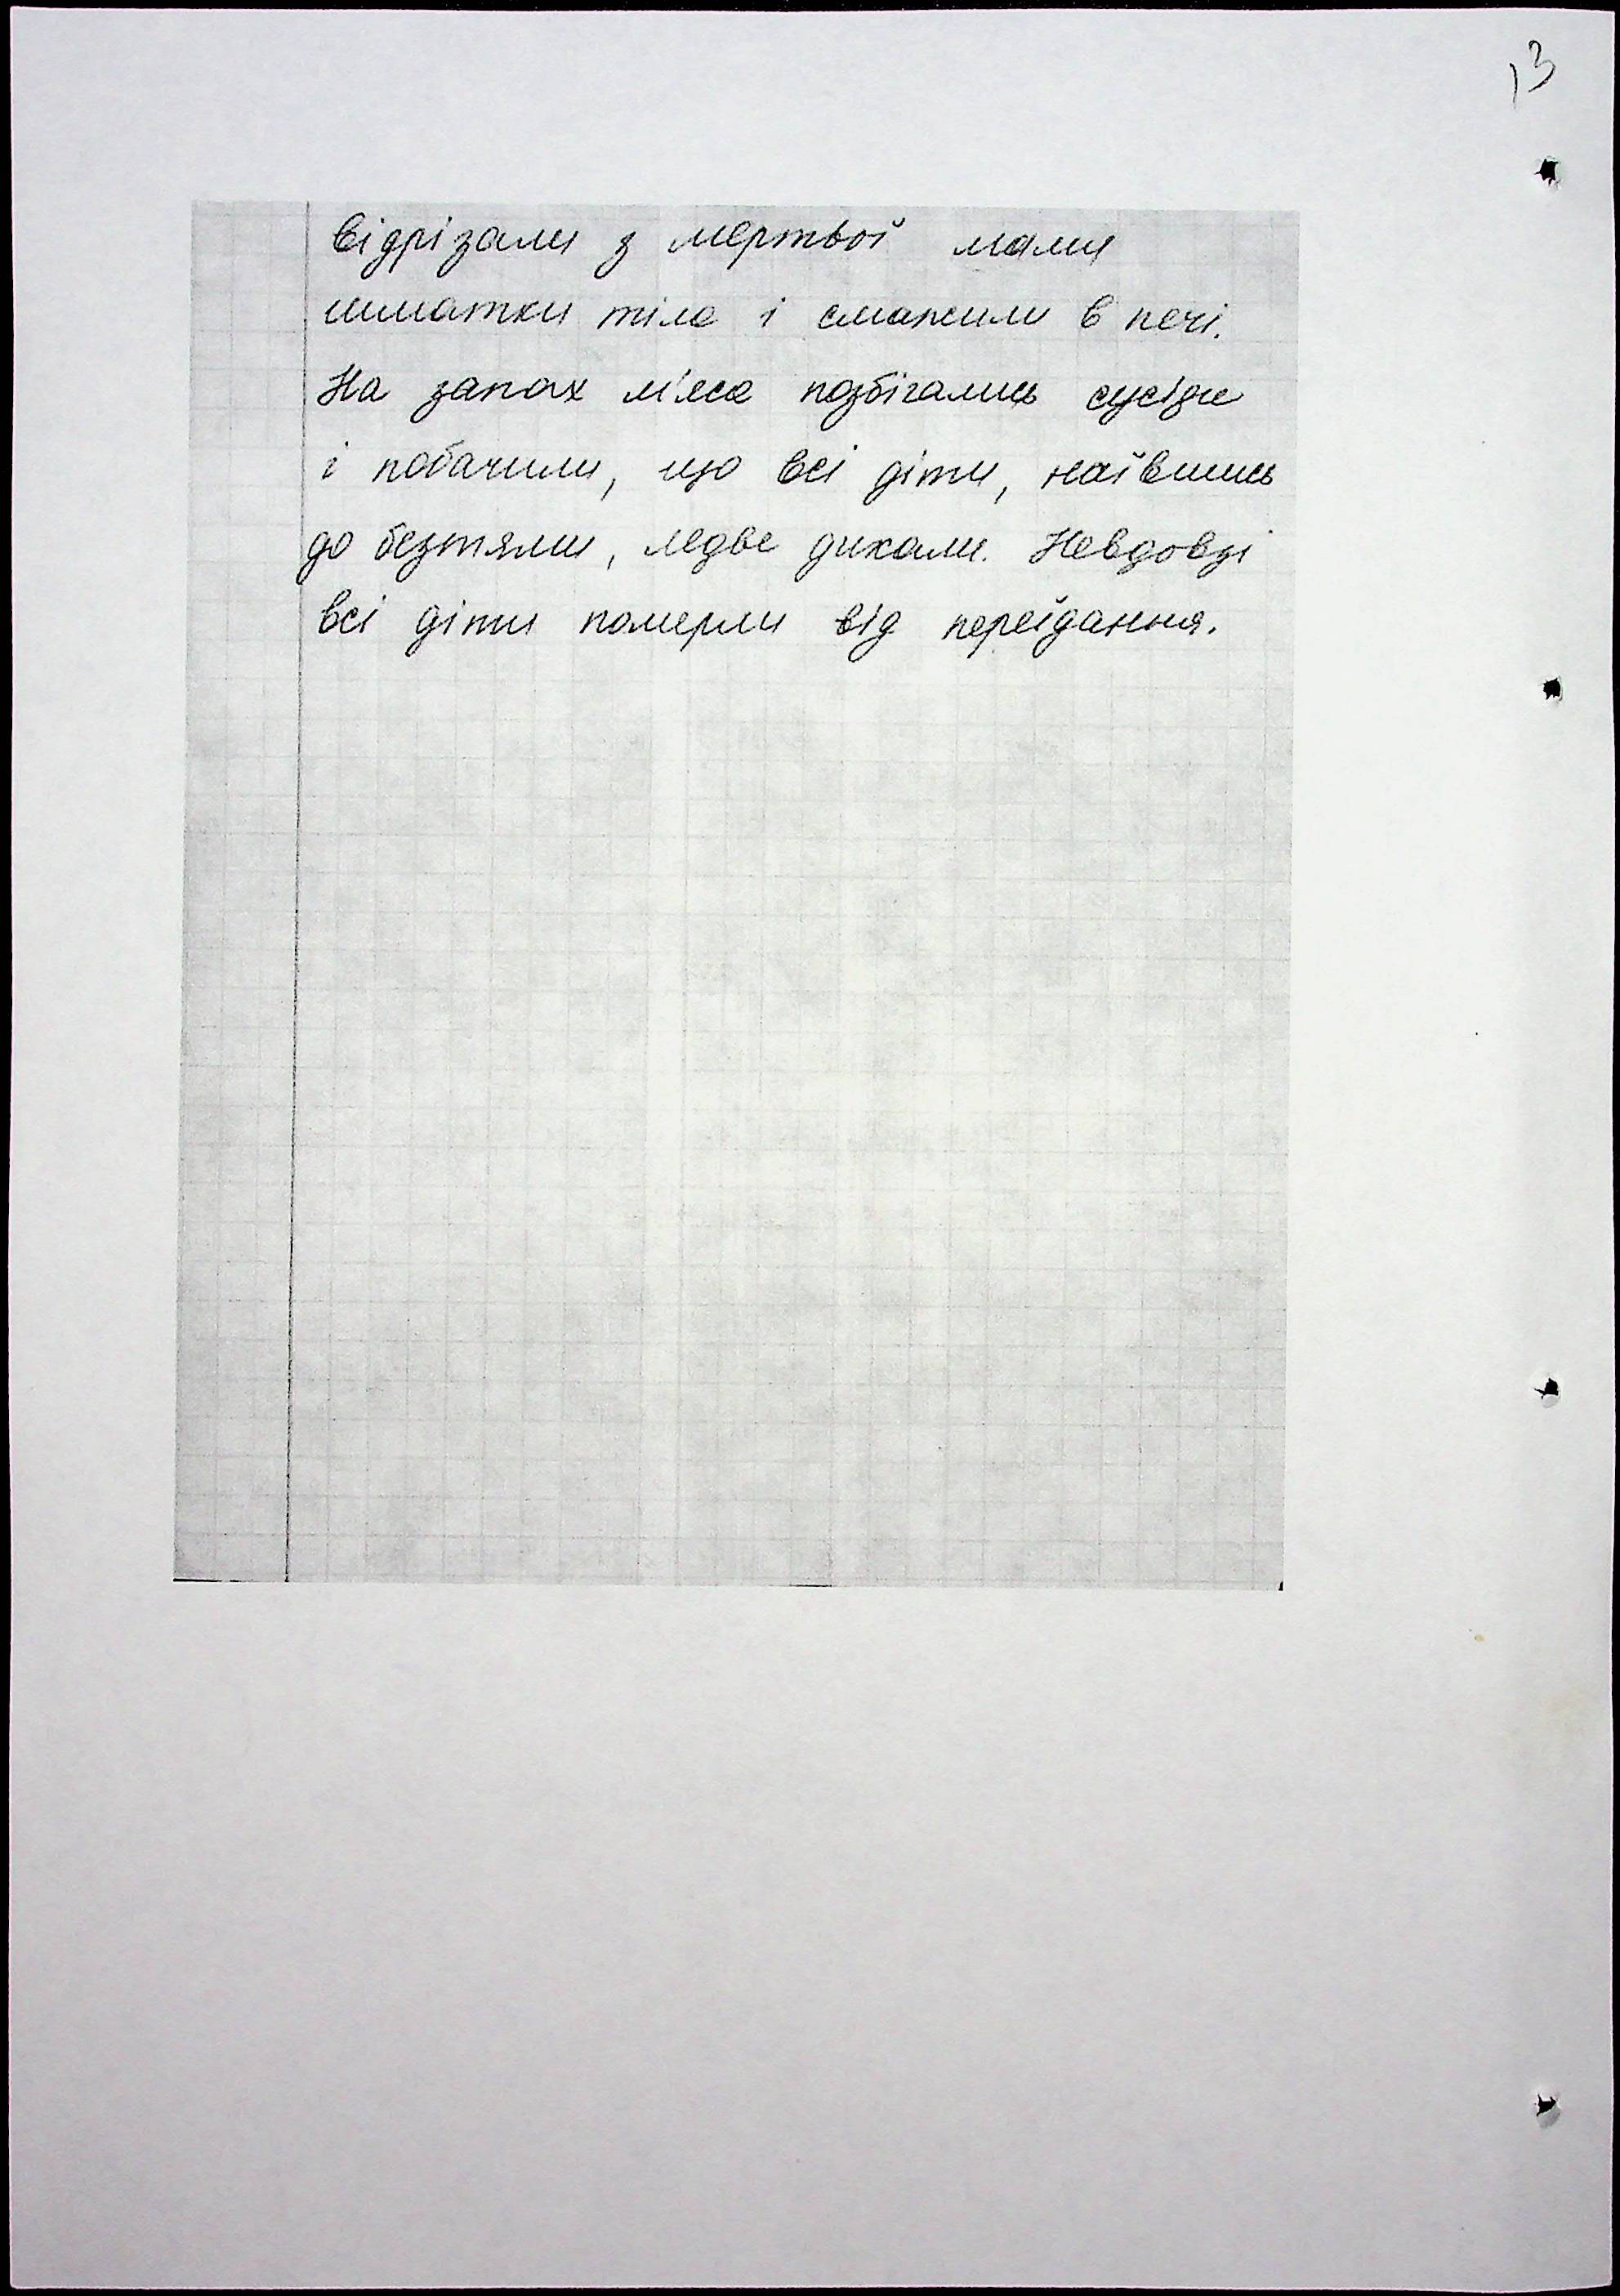 13
відрізали з мертвої мами
шматки тіла і смажили в печі.
На запах м'яса позбігались сусіди
і побачили, що всі діти, наївшись
до безтями, ледве дихали. Невдовзі
всі діти померли від переїдання.